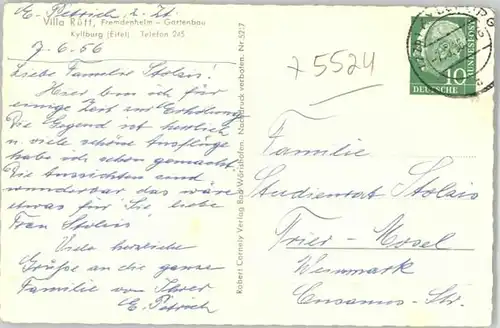 E. Petrich z. Zt.
Villa Rütt, Fremdenheim – Gartenbau
Kyllburg (Eifel) Telefon 245
7.6.56
Liebe Familie Stolais!
Hier bin ich für
einige Zeit zur Erholung
Die Gegend ist herrlich
u. viele schöne Ausflüge
habe ich schon gemacht.
Die Aussichten sind
wunderbar das wäre
etwas für Sie, liebe
Frau Stolais
Viele herzliche
Grüße an die ganze
Familie von Ihrer
E. Petrich
Robert Cornely Verlag Bad Wörishofen. Nachdruck verboten. Nr. 52/7
+ 5524
10
DEUTSCHE
BUNDESPOST
Familie
Studienrat Stolais
Trier-Mosel
Weinmark
Cusanus-Str.